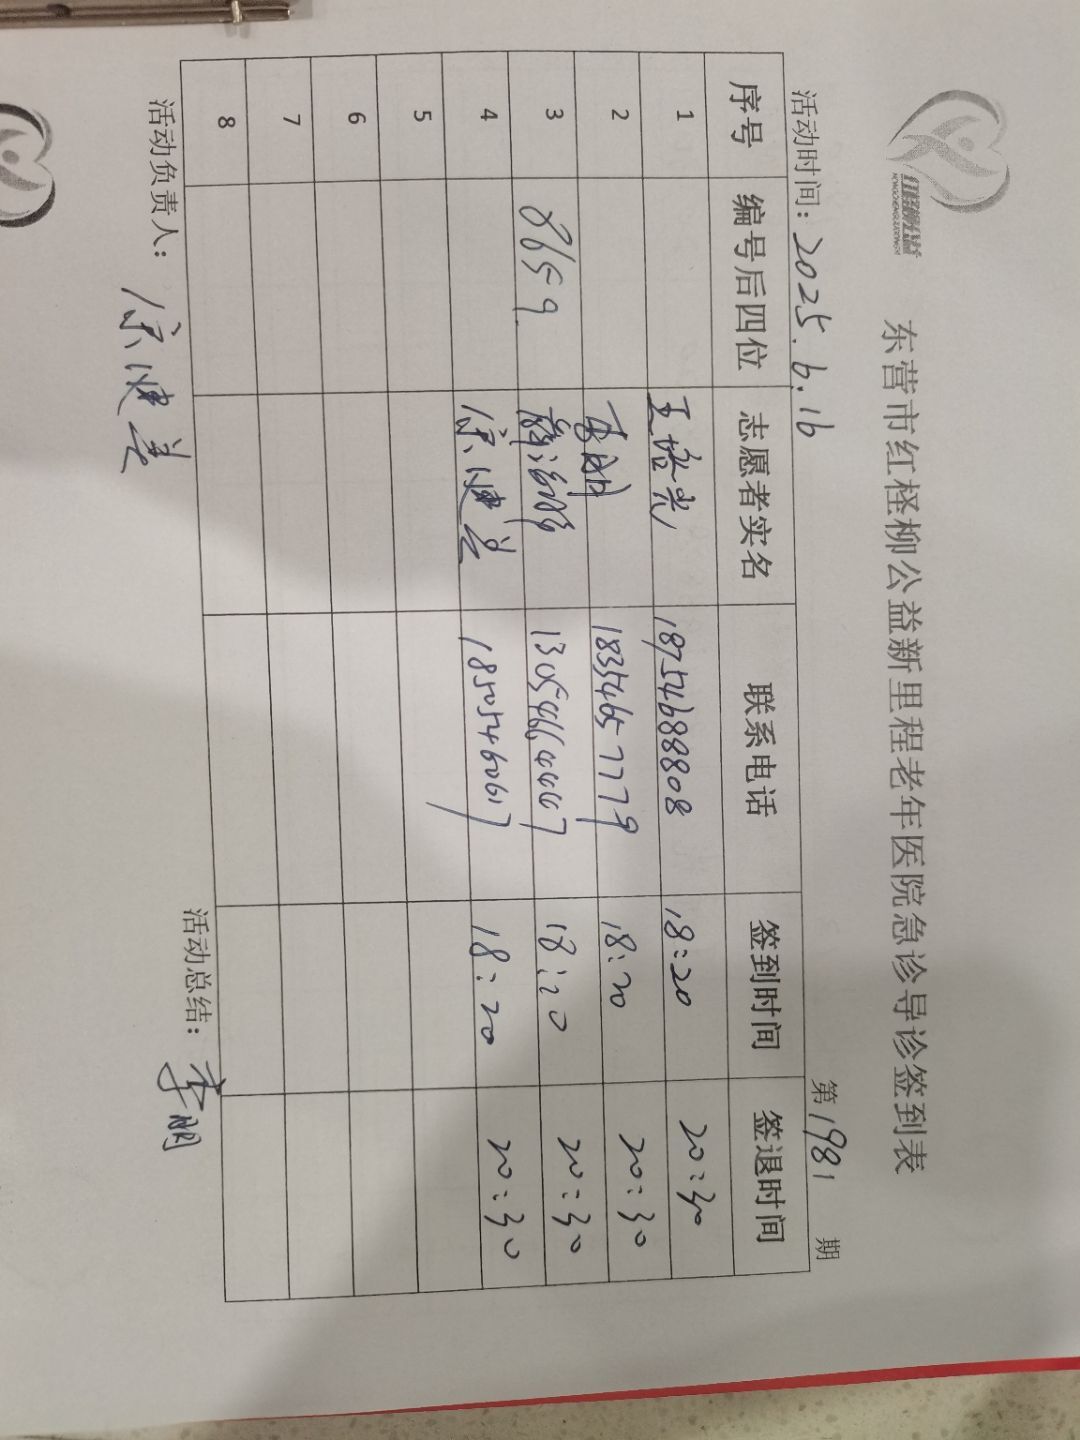 东营市红柽柳公益新里程老年医院急诊导诊签到表
活动时间：2025.6.16 第1981期
序号 编号后四位 志愿者实名 联系电话 签到时间 签退时间
1 18754688808 18:20 20:30
2 李朋 18354657779 18:20 20:30
3 8659 13054664447 18:20 20:30
4 18505460617 18:20 20:30
5
6
7
8
活动负责人： 活动总结：李朋